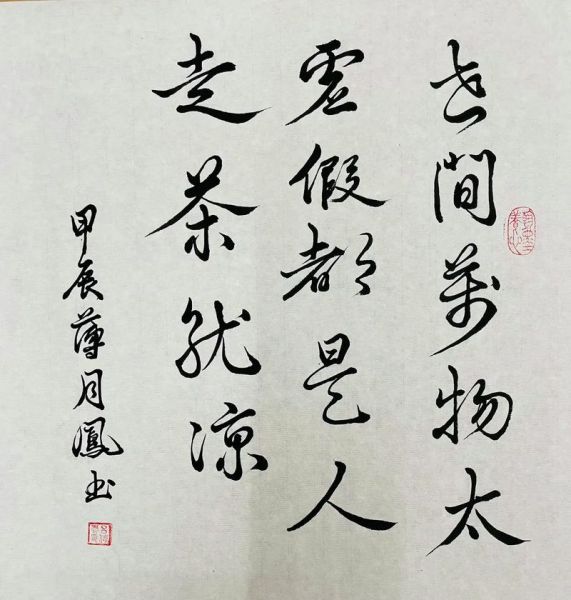 世間萬物太
虛假都是人
走茶就凉
甲辰薄月鳳书